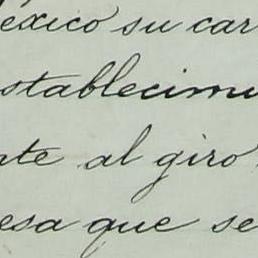 éxico su car
stablecimi
te al giro
esa que se